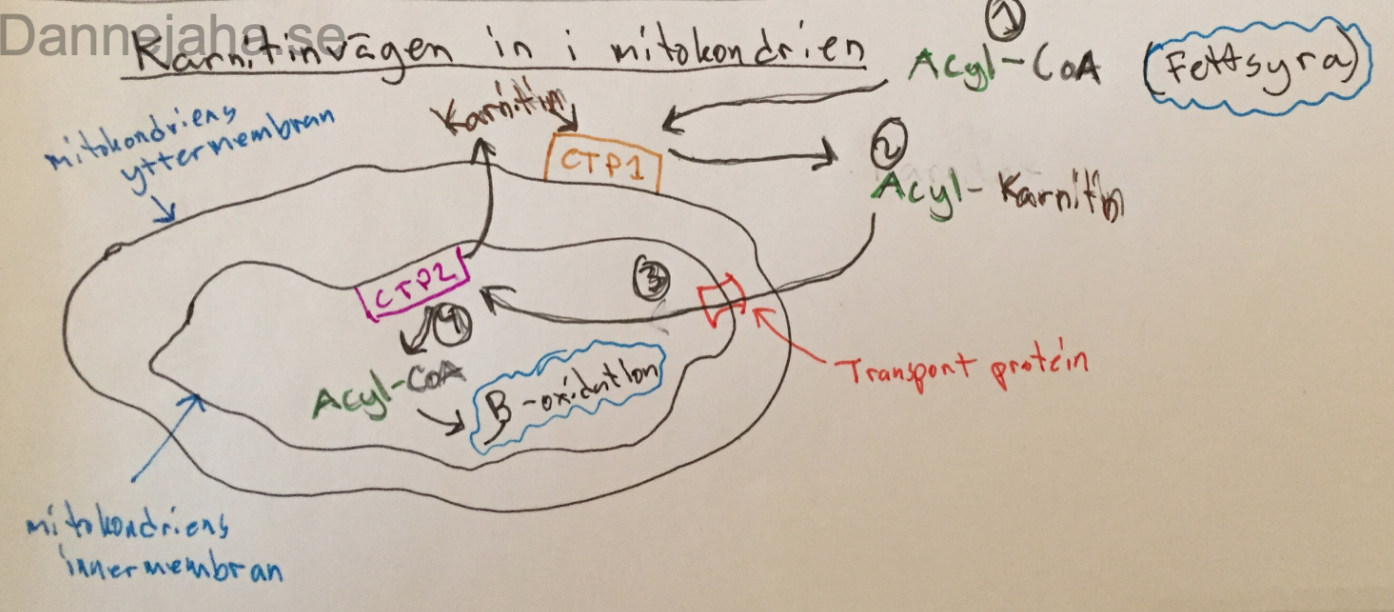 Dannejaha.se
Karnitinvägen in i mitokondrien
1
Acyl-CoA (Fettsyra)
mitokondriens
yttermembran
Karnitin
CTP1
2
Acyl-Karnitin
CTP2
3
4
Acyl-CoA
B-oxidation
Transport protein
mitokondriens
innermembran